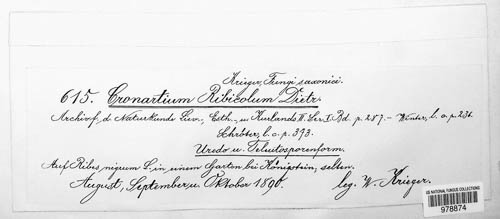 Krieger, Fungi saxonici.
615. Cronartium Ribicolum Dietr.
Archiv f. d. Naturkunde Liv-, Esth-, u. Kurlands II. Ser. I. Bd p. 287. – Winter, l. c. p. 236.
Schröter, l. c. p. 373.
Uredo u. Teleutosporenform.
Auf Ribes nigrum L. in einem Garten bei Königstein, selten.
August, September u. Oktober 1890. leg. W. Krieger.
US NATIONAL FUNGUS COLLECTIONS
978874